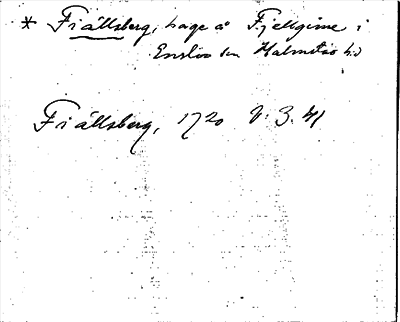 * Fiällsberg, hage å Fjellgine i
Enslöv sn Halmstad hd
Fiällsberg, 1720 V: 3. 41